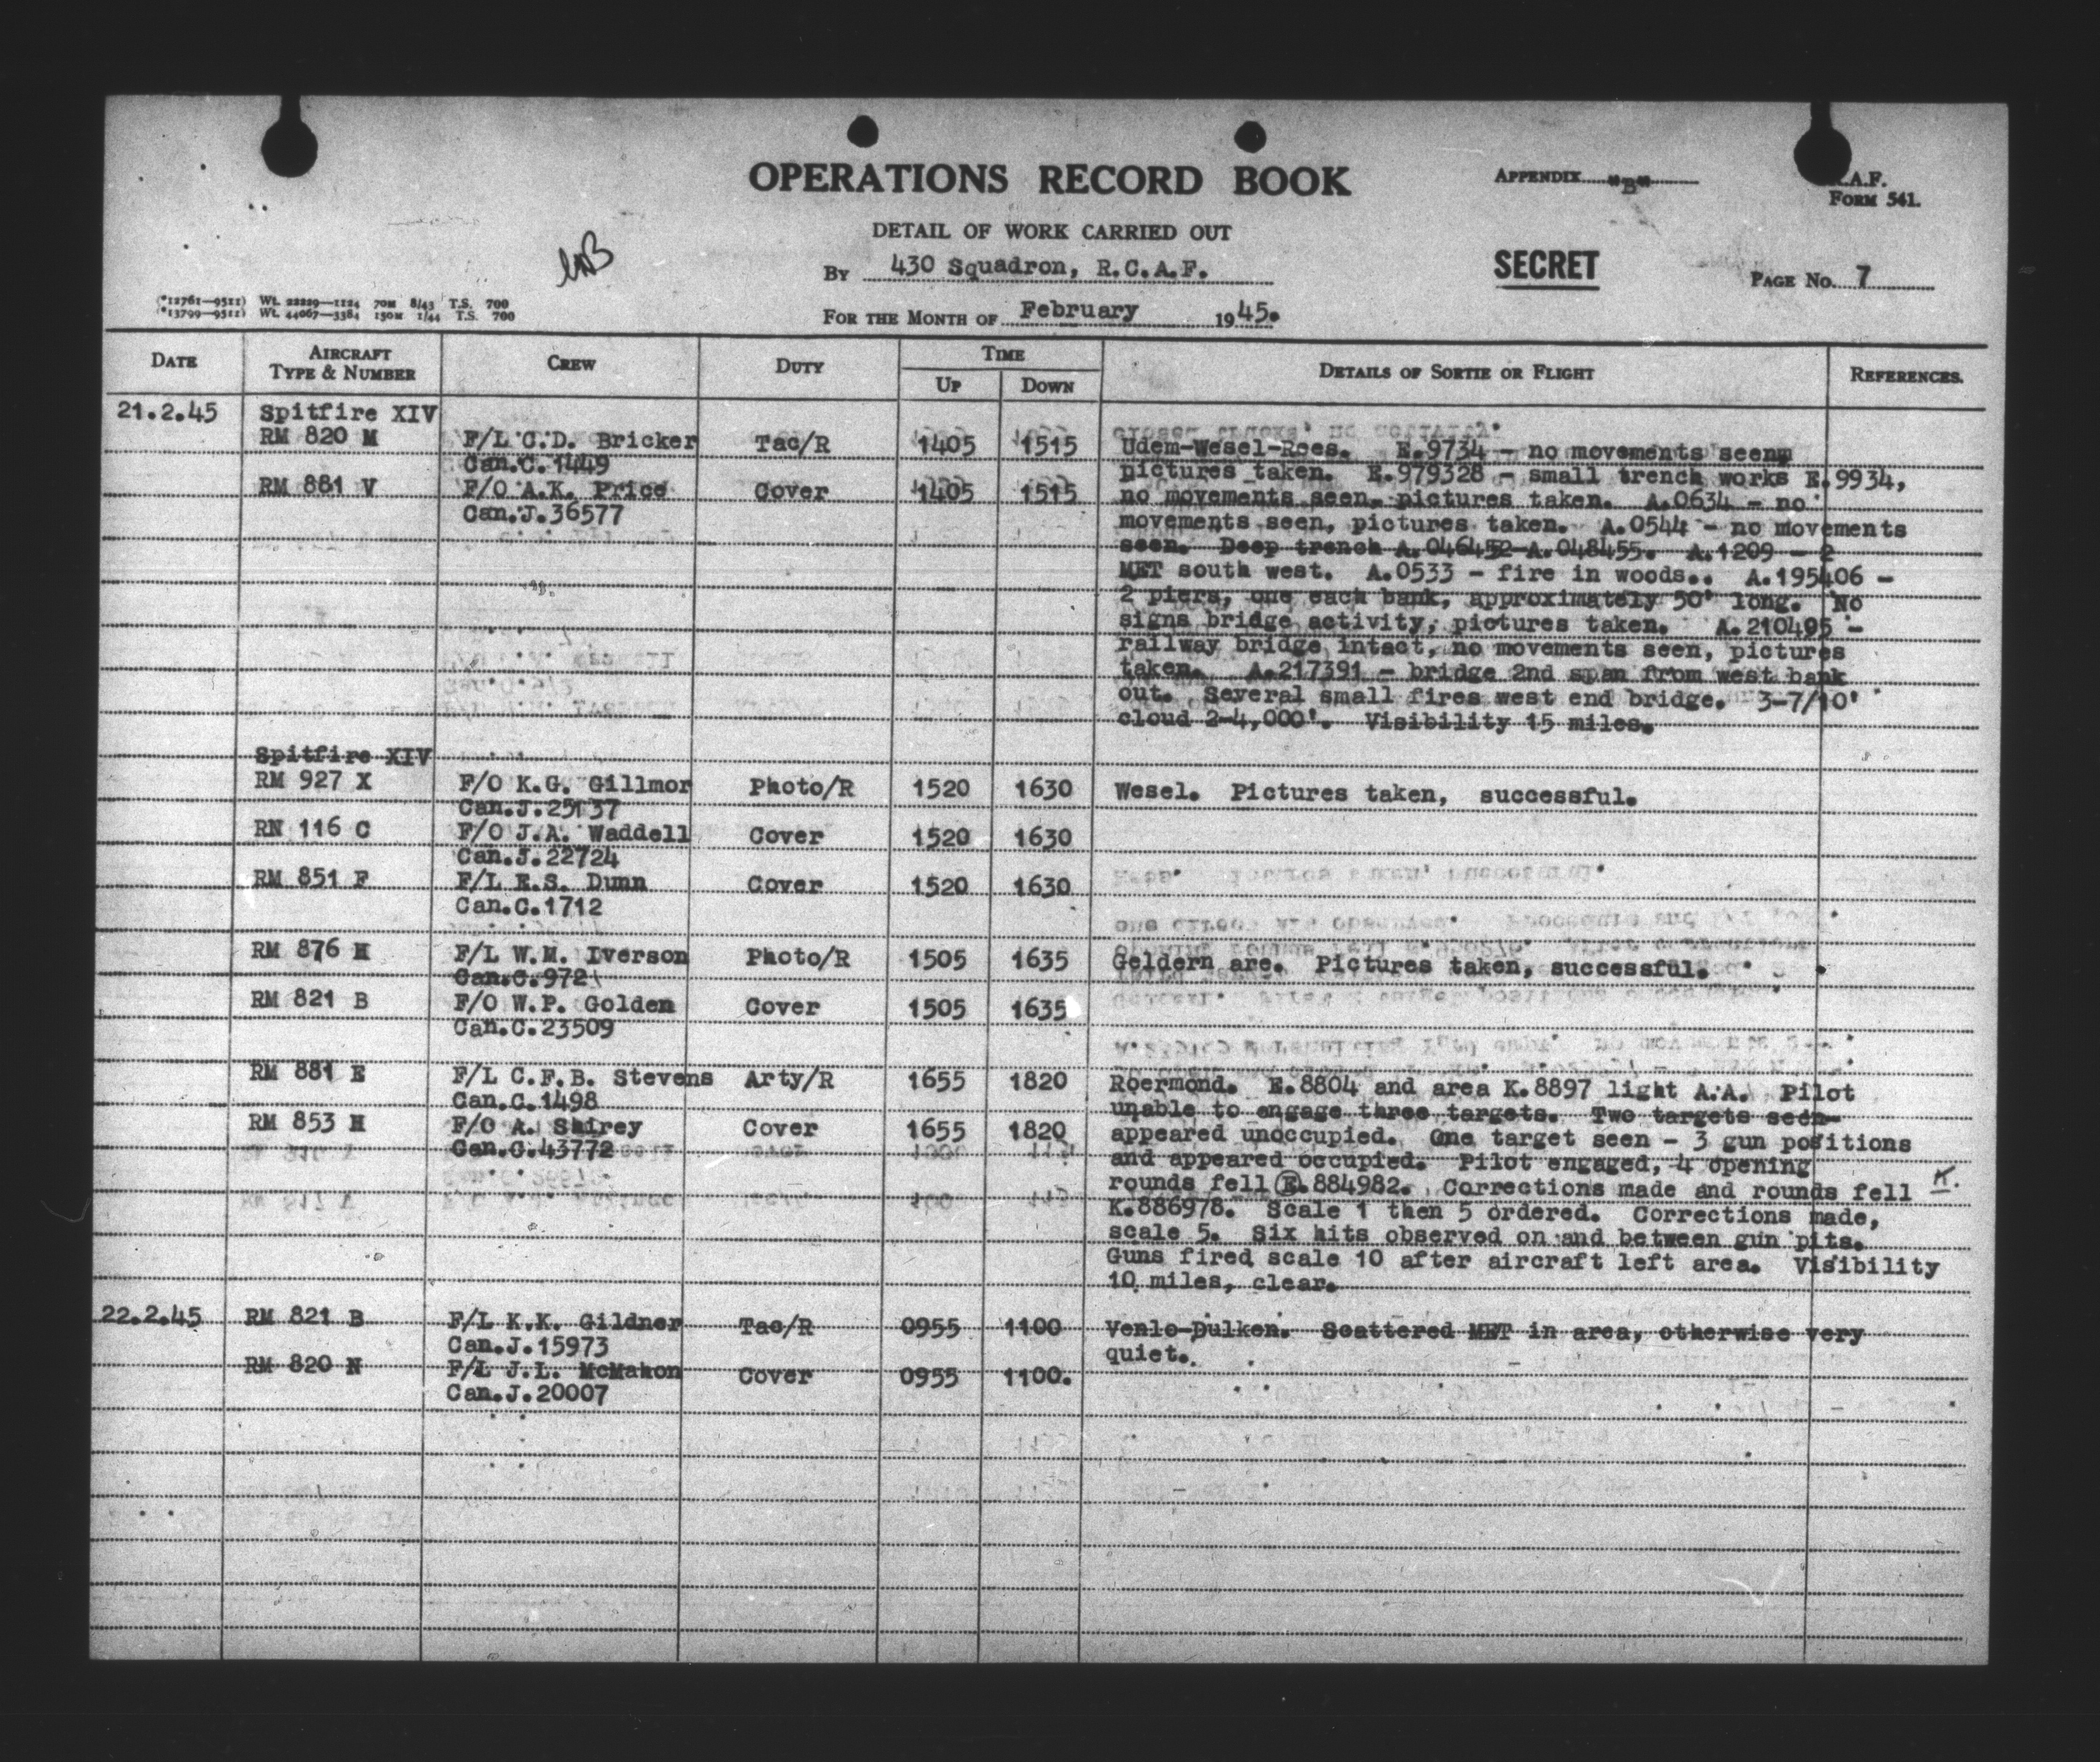 OPERATIONS RECORD BOOK
APPENDIX "B"
R.A.F.
FORM 541.
DETAIL OF WORK CARRIED OUT
BY 430 Squadron, R.C.A.F.
SECRET
PAGE No. 7
(*12761—9511) Wt. 22229—1124 70M 8/43 T.S. 700
(*13799—9511) Wt. 44067—3384 150M 1/44 T.S. 700
FOR THE MONTH OF February 1945.
DATE
AIRCRAFT
TYPE & NUMBER
CREW
DUTY
TIME
UP
DOWN
DETAILS OF SORTIE OR FLIGHT
REFERENCES.
21.2.45 Spitfire XIV
RM 820 M F/L C.D. Bricker Tac/R 1405 1515
Can.C.1449
RM 881 V F/O A.K. Price Cover 1405 1515
Can.J.36577
Udem-Wesel-Rees. E.9734 - no movements seen,
pictures taken. E.979328 - small trench works E.9934,
no movements seen, pictures taken. A.0634 - no
movements seen, pictures taken. A.0544 - no movements
seen. Deep trench A.046452-A.048455. A.1209 - 2
MET south west. A.0533 - fire in woods.. A.195406 -
2 piers, one each bank, approximately 50' long. No
signs bridge activity, pictures taken. A.210495 -
railway bridge intact, no movements seen, pictures
taken. A.217391 - bridge 2nd span from west bank
out. Several small fires west end bridge. 3-7/10'
cloud 2-4,000'. Visibility 15 miles.
Spitfire XIV
RM 927 X F/O K.G. Gillmor Photo/R 1520 1630 Wesel. Pictures taken, successful.
Can.J.25137
RN 116 C F/O J.A. Waddell Cover 1520 1630
Can.J.22724
RM 851 F F/L E.S. Dunn Cover 1520 1630
Can.C.1712
RM 876 H F/L W.M. Iverson Photo/R 1505 1635 Geldern are. Pictures taken, successful.
Can.C.972
RM 821 B F/O W.P. Golden Cover 1505 1635
Can.C.23509
RM 881 E F/L C.F.B. Stevens Arty/R 1655 1820
Can.C.1498
RM 853 H F/O A. Shirey Cover 1655 1820
Can.C.43772
Roermond. E.8804 and area K.8897 light A.A. Pilot
unable to engage three targets. Two targets seen
appeared unoccupied. One target seen - 3 gun positions
and appeared occupied. Pilot engaged, 4 opening
rounds fell E.884982. Corrections made and rounds fell K.
K.886978. Scale 1 then 5 ordered. Corrections made,
scale 5. Six hits observed on and between gun pits.
Guns fired scale 10 after aircraft left area. Visibility
10 miles, clear.
22.2.45 RM 821 B F/L K.K. Gildner Tac/R 0955 1100 Venlo-Dulken. Scattered MET in area, otherwise very
Can.J.15973 quiet.
RM 820 N F/L J.L. McMahon Cover 0955 1100.
Can.J.20007